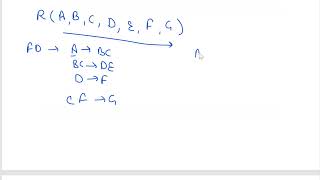 R(A,B,C,D,E,F,G)
FD → A→BC
BC→DE
D→F
CF→G